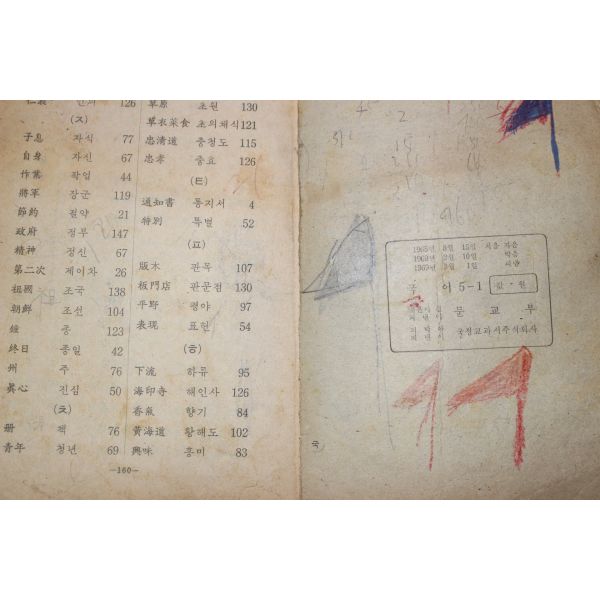 126
(ㅈ)
子息 자식 77
自身 자신 67
作業 작업 44
將軍 장군 119
節約 절약 21
政府 정부 147
精神 정신 67
第二次 제이차 26
祖國 조국 138
朝鮮 조선 104
鐘 종 123
終日 종일 42
州 주 76
眞心 진심 50
(ㅊ)
册 책 76
青年 청년 69
草原 초원 130
草衣菜食 초의채식 121
忠淸道 충청도 115
忠孝 충효 126
(ㅌ)
通知書 통지서 4
特別 특별 52
(ㅍ)
版木 판목 107
板門店 판문점 130
平野 평야 97
表現 표현 54
(ㅎ)
下流 하류 95
海印寺 해인사 126
香氣 향기 84
黃海道 황해도 102
興味 흥미 83
—160—
1965년 8월 15일 처음 지음
1969년 2월 10일 박음
1969년 3월 1일 펴냄
국 어 5-1
값 원
문 교 부
국정교과서주식회사
국